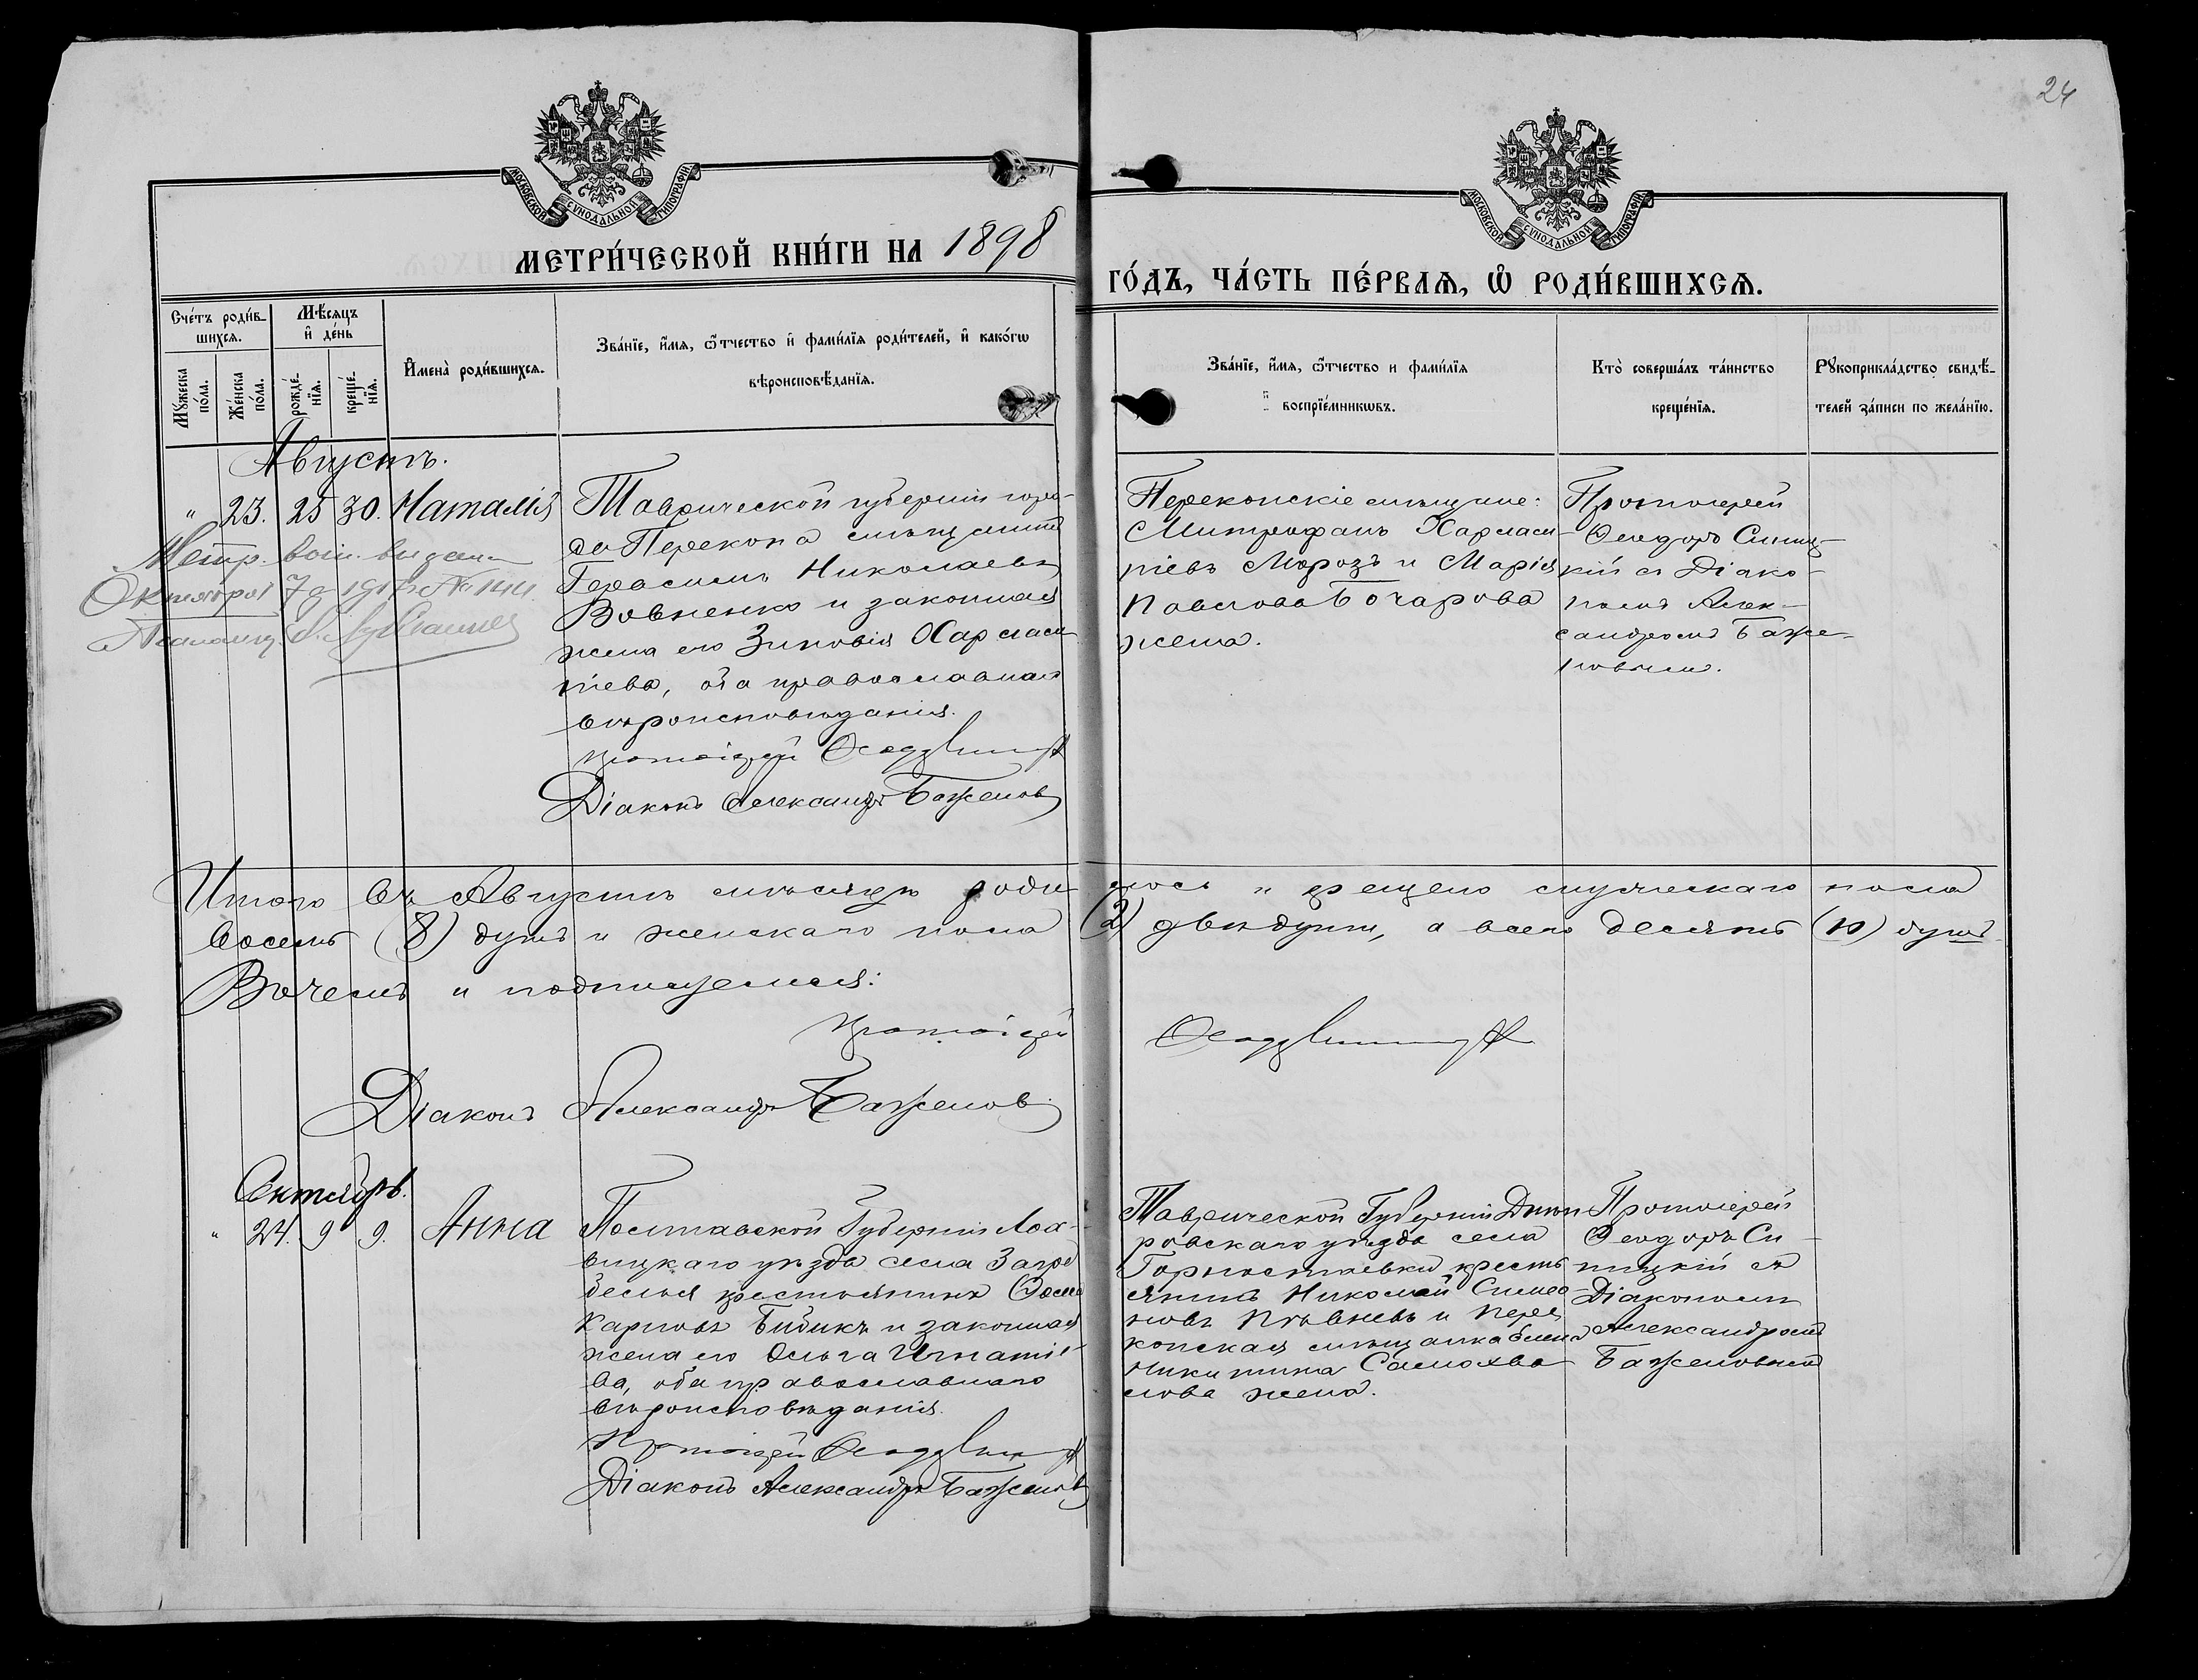 24
МОСКОВСКОЙ СѴНОДАЛЬНОЙ ТИПОГРАФІИ
МОСКОВСКОЙ СѴНОДАЛЬНОЙ ТИПОГРАФІИ
МЕТРИ́ЧЕСКОЙ КНИ́ГИ НА 1898
ГО́ДЪ, ЧА́СТЬ ПЕ́РВАѦ, Ѡ҆ РОДИ́ВШИХСѦ.
Сче́тъ роди́в-
шихсѧ.
Мѣ́сѧцъ
и҆ де́нь
Мꙋ́жеска
по́ла.
Же́нска
по́ла.
рожде́-
нїѧ.
креще́-
нїѧ.
И҆мена̀ роди́вшихсѧ.
Зва́нїе, и҆́мѧ, ѻ҆́тчество и҆ фами́лїѧ роди́телей, и҆ како́гѡ
вѣроисповѣ́данїѧ.
Зва́нїе, и҆́мѧ, ѻ҆́тчество и фами́лїѧ
воспрїе́мникѡвъ.
Кто̀ соверша́лъ та́инство
креще́нїѧ.
Рꙋкоприкла́дство свидѣ́-
телей за́писи по жела́нїю.
Августъ.
" 23. 25 30. Наталія
Метр. вып. выдана
Октября 7 д 191 № 144
Таврической губерніи горо-
да Перекопа мѣщанинъ
Герасимъ Николаевъ
Вовненко и законная
жена его Зиновія Харлам-
піева, оба православнаго
вѣроисповѣданія.
Протоіерей Ѳеодоръ Синицкій
Діаконъ Александръ Баженовъ
Перекопскіе мѣщане:
Митрофанъ Харлам-
піевъ Морозъ и Марія
Павлова Бочарова
жена.
Протоіерей
Ѳеодоръ Синиц-
кій съ Діако-
номъ Алек-
сандромъ Баже-
новымъ.
Итого въ Августѣ мѣсяцѣ роди лось и крещено мужескаго пола
восемь (8) душъ и женскаго пола (2) двѣ души, а всего десять (10) душъ.
Въ чемъ и подписуемся:
Протоіерей Ѳеодоръ Синицкій
Діаконъ Александръ Баженовъ
Октябрь.
" 24. 9 9. Анна
Полтавской Губерніи Лох-
вицкаго уѣзда села Загре
белья крестьянинъ
Карповъ Бибикъ и законная
жена его Ольга Игнатіе-
ва, оба православнаго
вѣроисповѣданія.
Протоіерей Ѳеодоръ Синицкій
Діаконъ Александръ Баженовъ
Таврической Губерніи Днѣп
ровскаго уѣзда села
Горностаевки кресть
янинъ Николай Симео
новъ Пѣвневъ и Пере
копская мѣщанка
Никитина Самохва
лова жена.
Протоіерей
Ѳеодоръ Си-
ницкій съ
Діакономъ
Александромъ
Баженовымъ